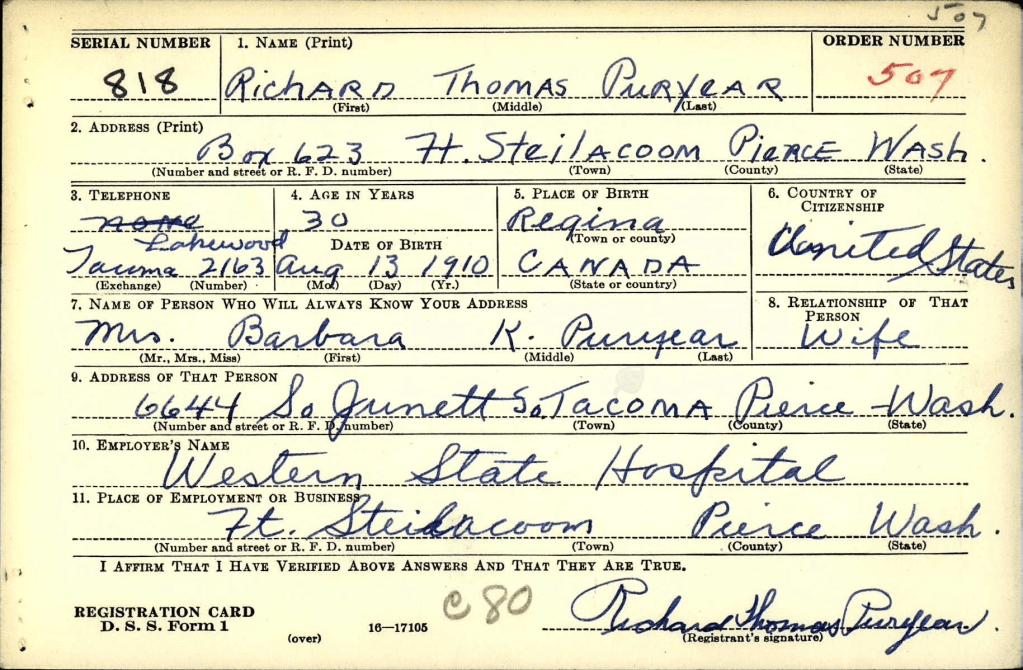 507
SERIAL NUMBER 1. NAME (Print) ORDER NUMBER
818 RICHARD THOMAS PURYEAR 507
(First) (Middle) (Last)
2. ADDRESS (Print)
Box 623 Ft. STEILACOOM PIERCE WASH.
(Number and street or R. F. D. number) (Town) (County) (State)
3. TELEPHONE 4. AGE IN YEARS 5. PLACE OF BIRTH 6. COUNTRY OF CITIZENSHIP
none 30 Regina
Lakewood DATE OF BIRTH (Town or county) United States
Tacoma 2163 Aug 13 1910 CANADA
(Exchange) (Number) (Mo.) (Day) (Yr.) (State or country)
7. NAME OF PERSON WHO WILL ALWAYS KNOW YOUR ADDRESS 8. RELATIONSHIP OF THAT PERSON
Mrs. Barbara K. Puryear Wife
(Mr., Mrs., Miss) (First) (Middle) (Last)
9. ADDRESS OF THAT PERSON
6644 So Junett So. TACOMA Pierce Wash.
(Number and street or R. F. D. number) (Town) (County) (State)
10. EMPLOYER'S NAME
Western State Hospital
11. PLACE OF EMPLOYMENT OR BUSINESS
Ft. Steilacoom Pierce Wash.
(Number and street or R. F. D. number) (Town) (County) (State)
I AFFIRM THAT I HAVE VERIFIED ABOVE ANSWERS AND THAT THEY ARE TRUE.
REGISTRATION CARD C80 Richard Thomas Puryear.
D. S. S. Form 1 (over) 16—17105 (Registrant's signature)